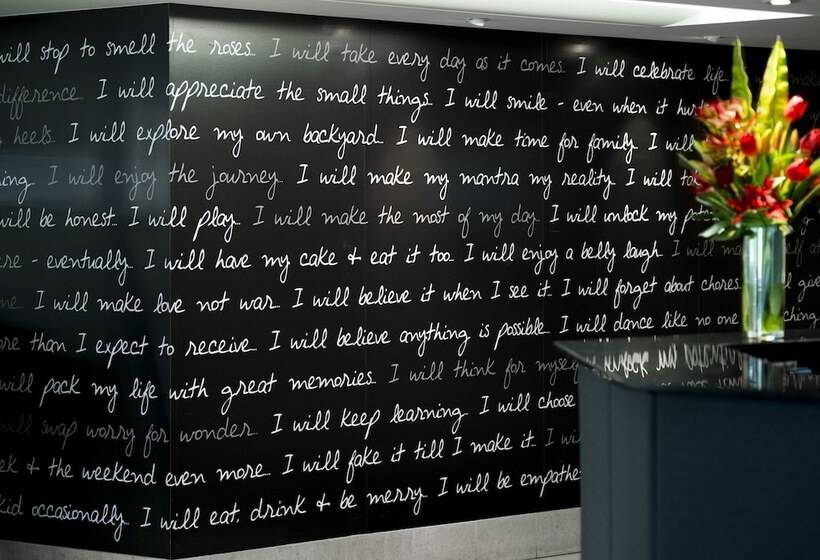 will stop to smell the roses. I will take every day as it comes. I will celebrate life
difference. I will appreciate the small things. I will smile - even when it
heels. I will explore my own backyard. I will make time for family. I will
I will enjoy the journey. I will make my mantra my reality. I will
will be honest. I will play. I will make the most of my day. I will unlock my
- eventually. I will have my cake & eat it too. I will enjoy a belly laugh. I will
I will make love not war. I will believe it when I see it. I will forget about chores.
than I expect to receive. I will believe anything is possible. I will dance like no one
will pack my life with great memories. I will think for
will swap worry for wonder. I will keep learning. I will choose
& the weekend even more. I will fake it till I make it. I
kid occasionally. I will eat, drink & be merry. I will be